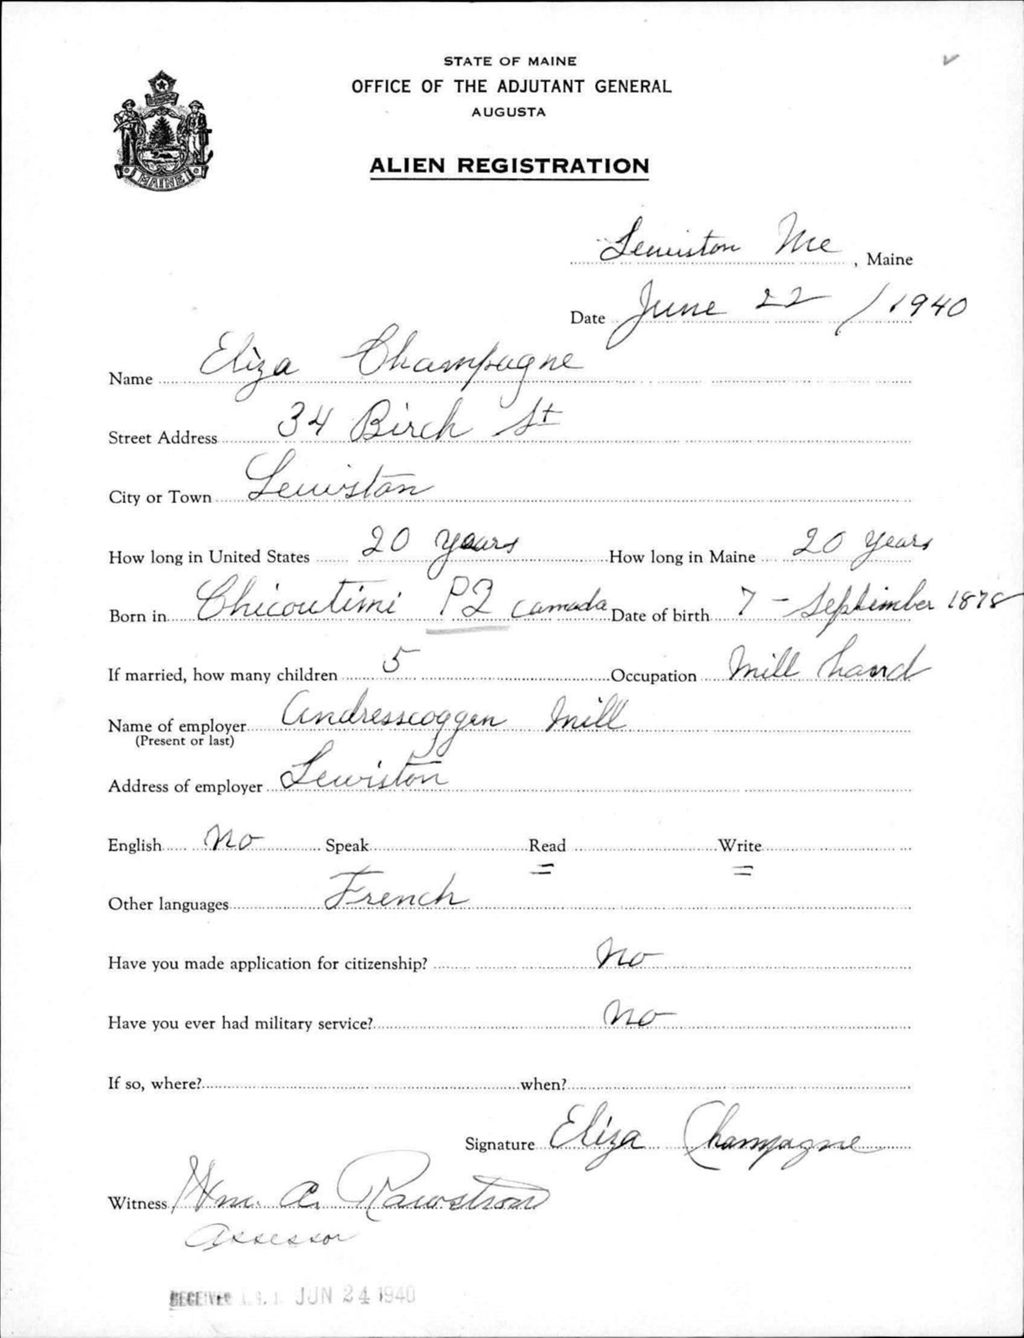 STATE OF MAINE
OFFICE OF THE ADJUTANT GENERAL
AUGUSTA
MAINE
ALIEN REGISTRATION
Lewiston Me, Maine
Date June 22 / 1940
Name Eliza Champagne
Street Address 34 Birch St
City or Town Lewiston
How long in United States 20 years How long in Maine 20 years
Born in Chicoutimi P2 Canada Date of birth 7 - September 1878
If married, how many children 5 Occupation Mill hand
Name of employer Andresscoggen Mill
(Present or last)
Address of employer Lewiston
English No Speak Read = Write =
Other languages French
Have you made application for citizenship? No
Have you ever had military service? No
If so, where? when?
Signature Eliza Champagne
Witness Wm. A. Rawstron
Assessor
RECEIVED JUN 24 1940